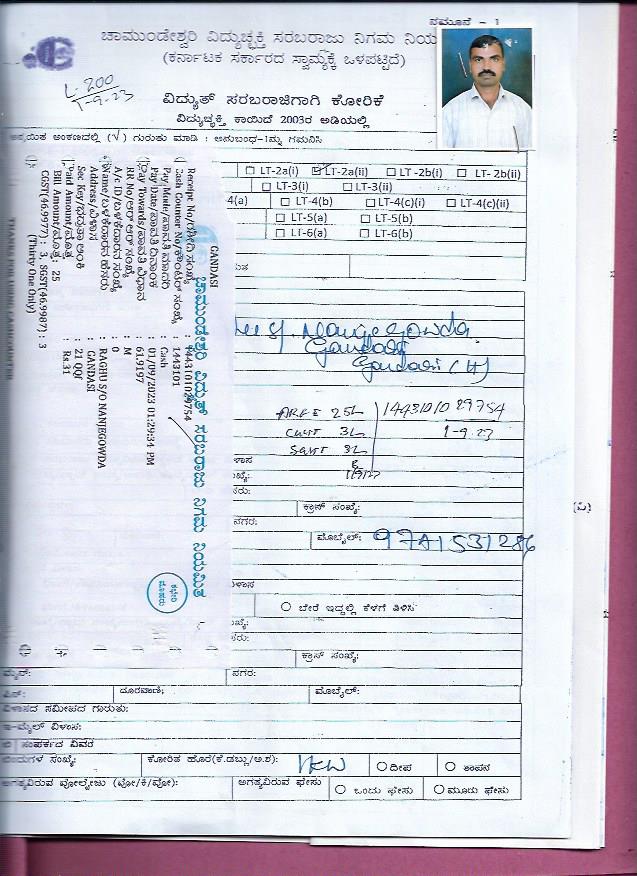 ನಮೂನೆ - 1
ಚಾಮುಂಡೇಶ್ವರಿ ವಿದ್ಯುಚ್ಛಕ್ತಿ ಸರಬರಾಜು ನಿಗಮ ನಿಯ
(ಕರ್ನಾಟಕ ಸರ್ಕಾರದ ಸ್ವಾಮ್ಯಕ್ಕೆ ಒಳಪಟ್ಟಿದೆ)
L-200
1-9-23
ವಿದ್ಯುತ್ ಸರಬರಾಜಿಗಾಗಿ ಕೋರಿಕೆ
ವಿದ್ಯುಚ್ಛಕ್ತಿ ಕಾಯಿದೆ 2003ರ ಅಡಿಯಲ್ಲಿ
ಅಂಕಣದಲ್ಲಿ (√) ಗುರುತು ಮಾಡಿ : ಅನುಬಂಧ-1ನ್ನು ಗಮನಿಸಿ
LT-2a(i) LT-2a(ii) LT-2b(i) LT-2b(ii)
LT-3(i) LT-3(ii)
4(a) LT-4(b) LT-4(c)(i) LT-4(c)(ii)
LT-5(a) LT-5(b)
LT-6(a) LT-6(b)
GANDASI
ಚಾಮುಂಡೇಶ್ವರಿ ವಿದ್ಯುತ್ ಸರಬರಾಜು ನಿಗಮ ನಿಯಮಿತ
Receipt No/ರಶೀದಿ ಸಂಖ್ಯೆ : 1443101029754
Cash Counter No/ಕೌಂಟರ್ ಸಂಖ್ಯೆ : 1443101
Pay Mode/ಪಾವತಿ ಮಾದರಿ : Cash
Pay Date/ಪಾವತಿ ದಿನಾಂಕ : 01/09/2023 01:29:34 PM
Pay Towards/ಪಾವತಿ ವಿಧಾನ : 61.9197
RR No/ಆರ್ ಆರ್ ಸಂಖ್ಯೆ : M
A/c ID/ಬಳಕೆದಾರನ ಸಂಖ್ಯೆ : 0
Name/ಬಳಕೆದಾರನ ಹೆಸರು : RAGHU S/O NANJEGOWDA
Address/ವಿಳಾಸ : GANDASI
Sec Key/ಭದ್ರತಾ ಅಂಕಿ : 21 QQf
Paid Amount/ಮೊತ್ತ : Rs.31
Bill Amount/ಮೊತ್ತ: 25
CGST(46.9977) : 3, SGST(46.9987) : 3
(Thirty One Only)
ಕಛೇರಿ
ಮೊಹರು
Gandasi
Gandasi (H)
25L 14431010 29754
3L 1-9-23
3L
ಕ್ರಾಸ್ ಸಂಖ್ಯೆ:
ನಗರ:
ಮೊಬೈಲ್: 9741531286
ಬೇರೆ ಇದ್ದಲ್ಲಿ ಕೆಳಗೆ ತಿಳಿಸಿ
ಕ್ರಾಸ್ ಸಂಖ್ಯೆ:
ಮೈನ್: ನಗರ:
ಪಿನ್: ದೂರವಾಣಿ: ಮೊಬೈಲ್:
ವಿಳಾಸದ ಸಮೀಪದ ಗುರುತು:
ಇ-ಮೈಲ್ ವಿಳಾಸ:
ಸಂಪರ್ಕದ ವಿವರ
ಸಂಖ್ಯೆ: ಕೋರಿತ ಹೊರೆ(ಕೆ.ಡಬ್ಲು/ಅ.ಶ): 1KW ದೀಪ ತಂಪನ
ಅಗತ್ಯವಿರುವ ವೋಲ್ಟೇಜು (ವೋ/ಕಿ/ವೋ): ಅಗತ್ಯವಿರುವ ಫೇಸು ಒಂದು ಫೇಸು ಮೂರು ಫೇಸು